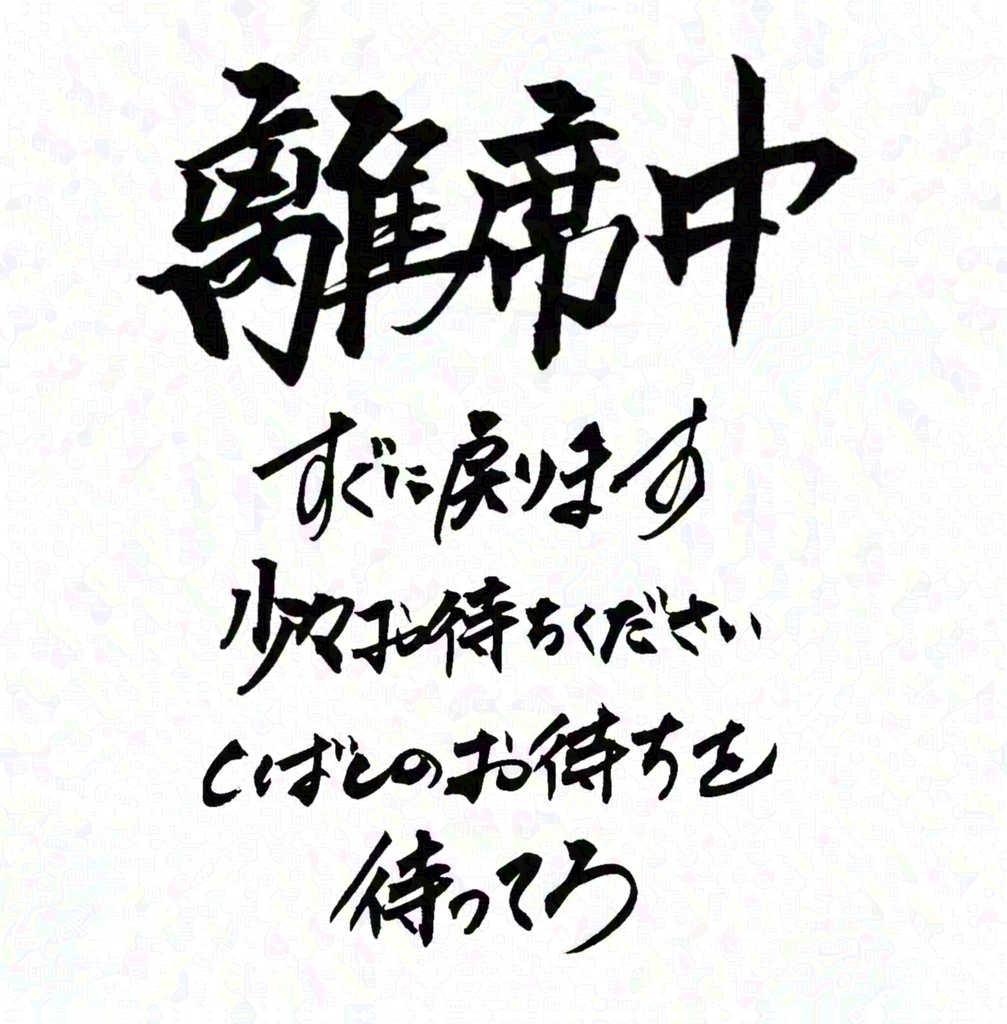 離席中
すぐに戻ります
少々お待ちください
しばしのお待ちを
待ってろ